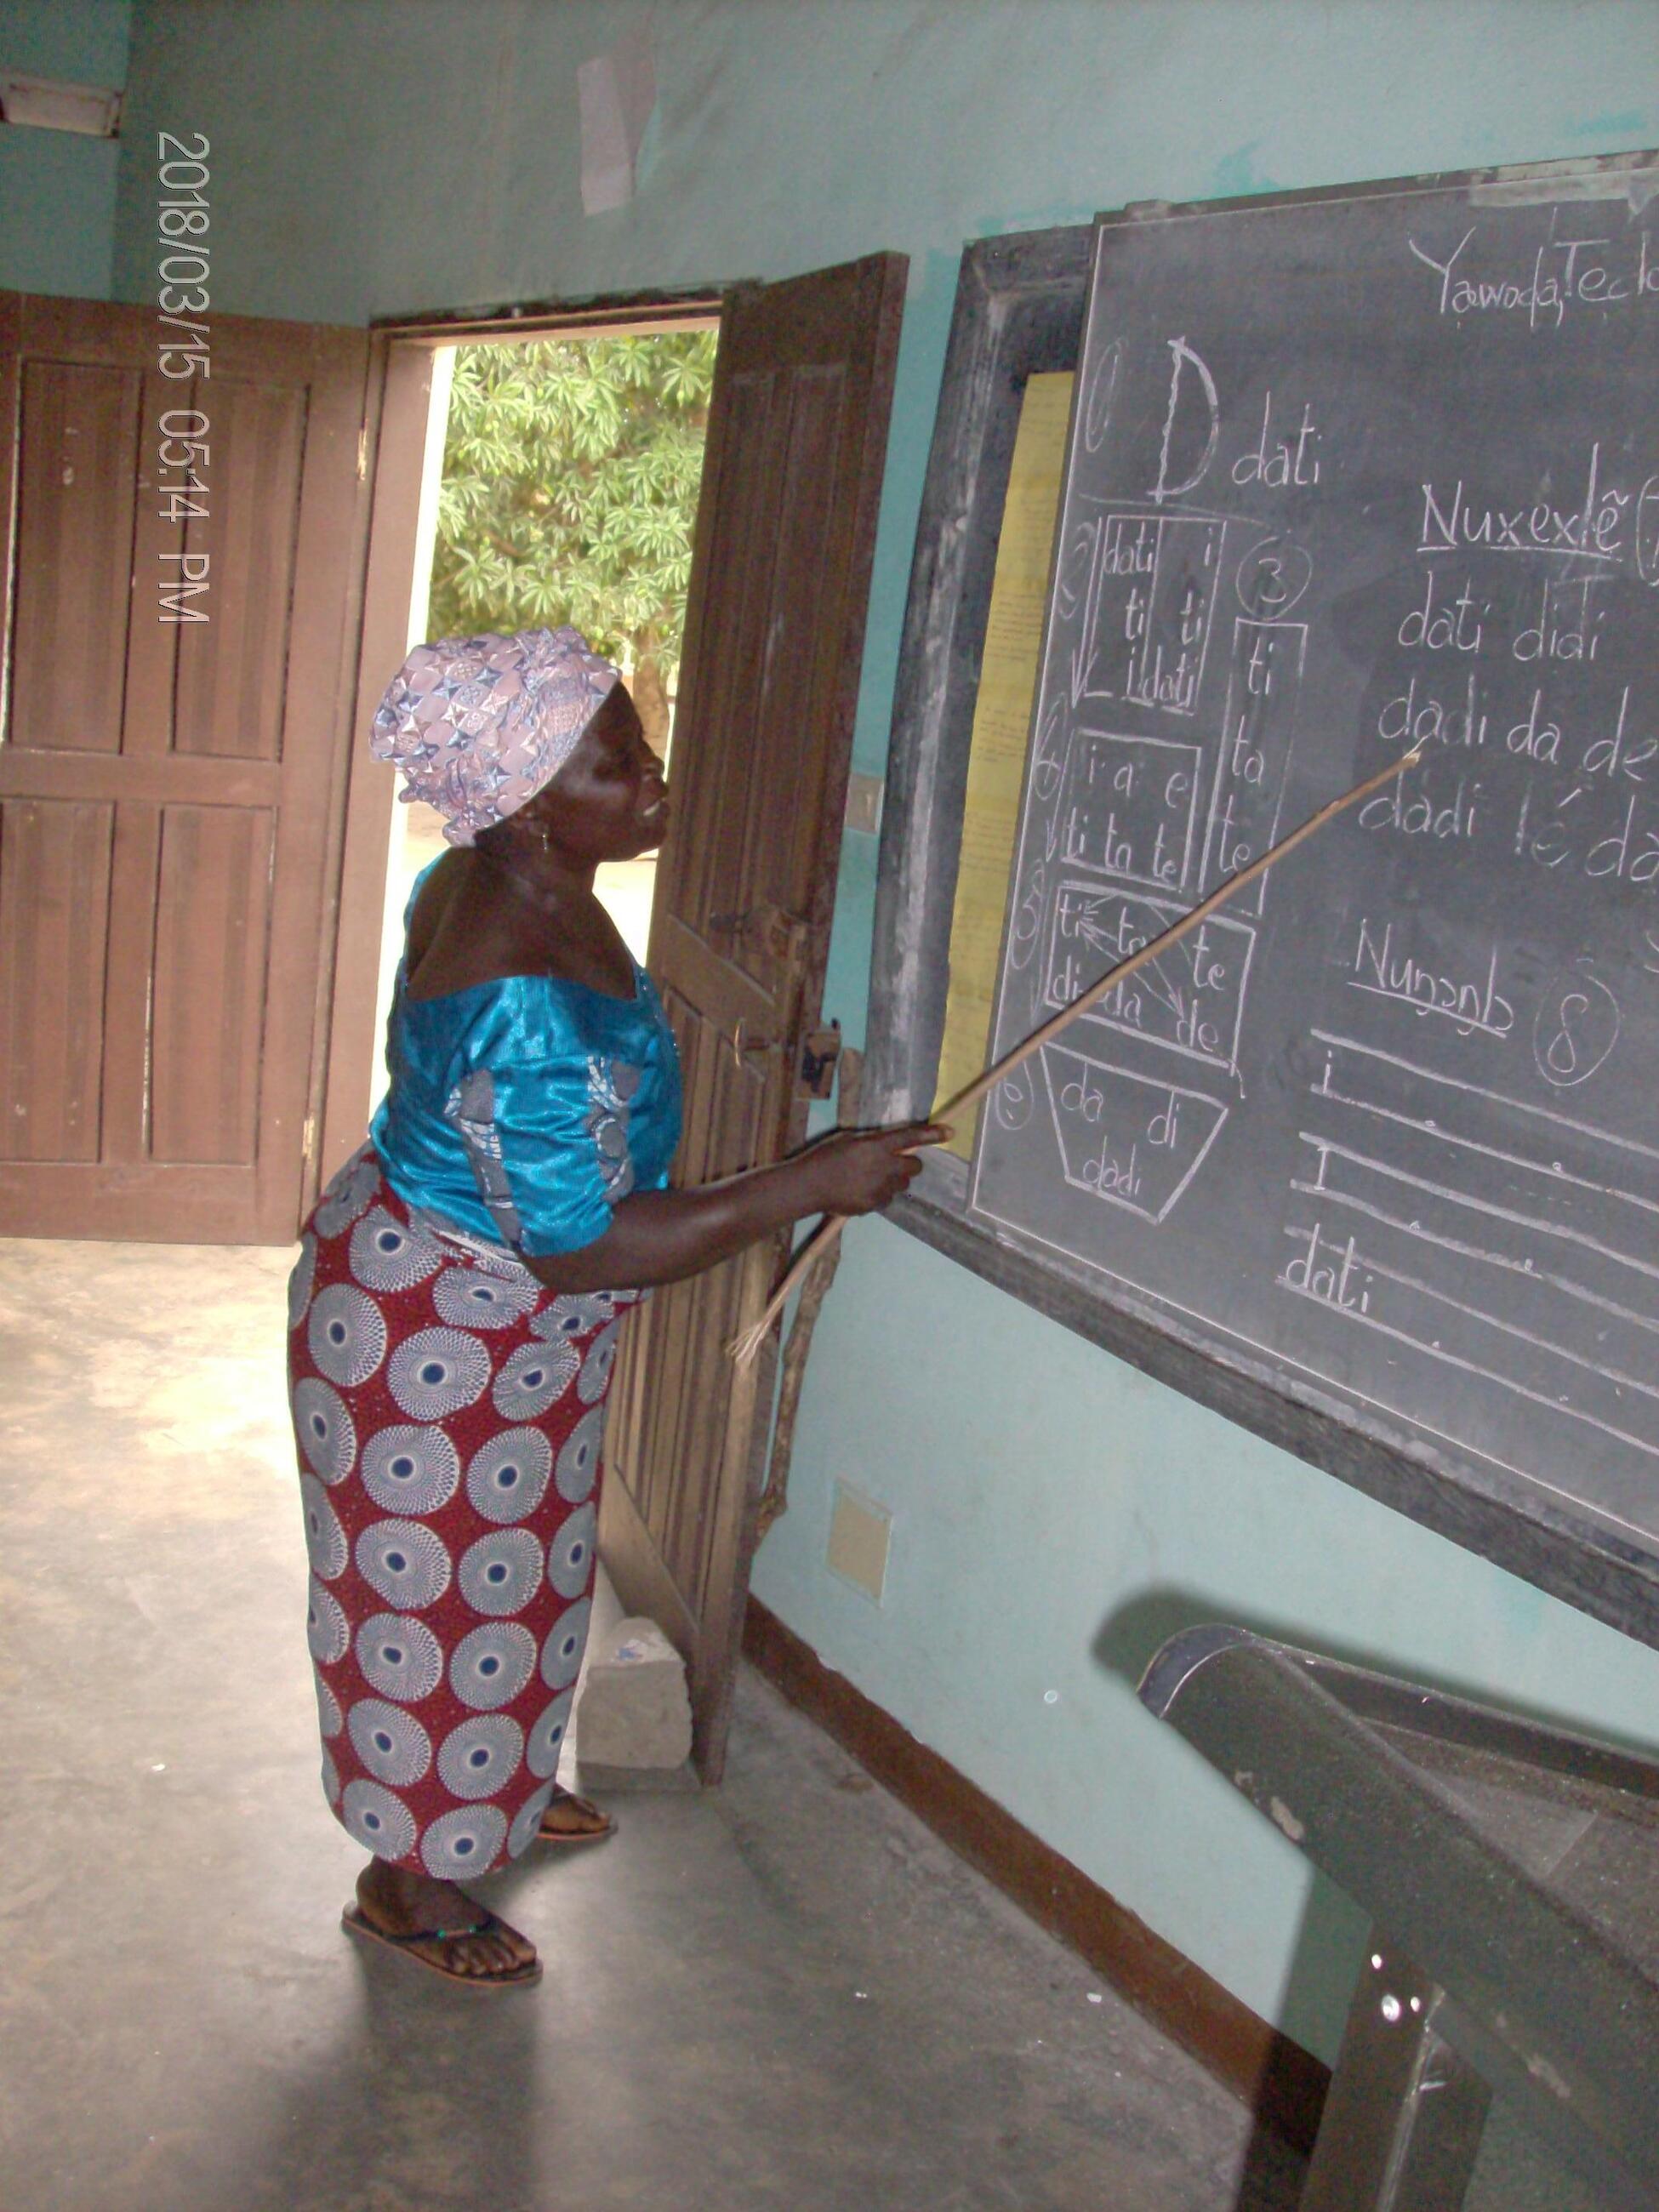 2018/03/15 05:14 PM
D dati
dati i
ti ti
i dati
3
ti
ta
te
i a e
ti ta te
5
ti ta te
di da de
da di
dadi
Nuxexlẽ
dati didi
dadi da de
dadi lé da
Nuŋɔŋlɔ 8
i
I
dati